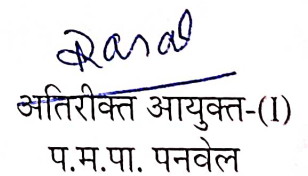 अतिरीक्त आयुक्त-(1)
प.म.पा. पनवेल